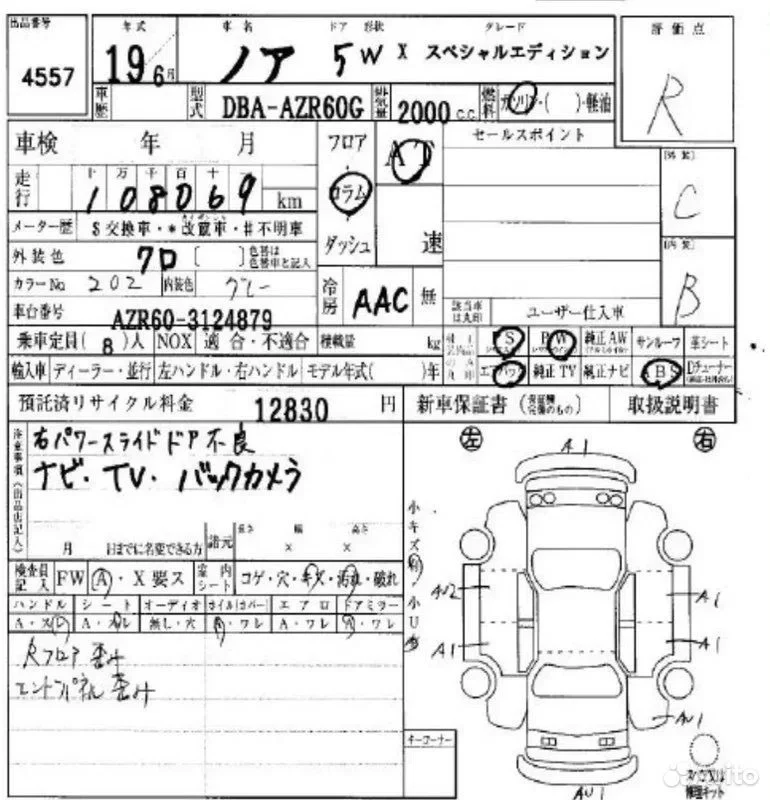 出品番号 年式 車名 ドア 形状 グレード 評価点
4557 19 6月 ノア 5W X スペシャルエディション R
車歴 型式 DBA-AZR60G 排気量 2000 c.c. 燃料 ガソリン・( )・軽油
車検 年 月 フロア AT セールスポイント
走行 十 万 千 百 十 [外装]
108069 km コラム C
メーター歴 S交換車・*改蔵車・#不明車 ダッシュ 速
外装色 クロ [ ] 色替は色替車と記入 [内装]
カラーNo 202 内装色 グレー 冷房 AAC 無 B
車台番号 AZR60-3124879 該当車は丸印 ユーザー仕入車
乗車定員(8)人 NOX 適合・不適合 積載量 kg PS PW 純正AW サンルーフ 革シート
輸入車 ディーラー・並行 左ハンドル・右ハンドル モデル年式( )年 エアバック 純正TV 純正ナビ ABS Dチューナー
預託済リサイクル料金 12830 円 新車保証書 (保証継続のもの) 取扱説明書
注意事項(出品店記入) 右パワースライドドア不良
ナビ・TV・バックカメラ
左 右
月 日までに名変できる方 諸元 長さ 幅 高さ
× ×
検査員記入 FW A・X要ス 室内シート コゲ・穴・キズ・汚れ・破れ
ハンドル シート オーディオ オイル(カバー) エアロ ドアミラー
A・スレ A・スレ 無し・穴 A・ワレ A・ワレ A・ワレ
Rフロア 歪み
エンドパネル 歪み
小キズ有・小U有
A1
AU2 A1
A1 A1
AU1
AU1
キーコーナー
スペアタイヤ
修理キット
Avito